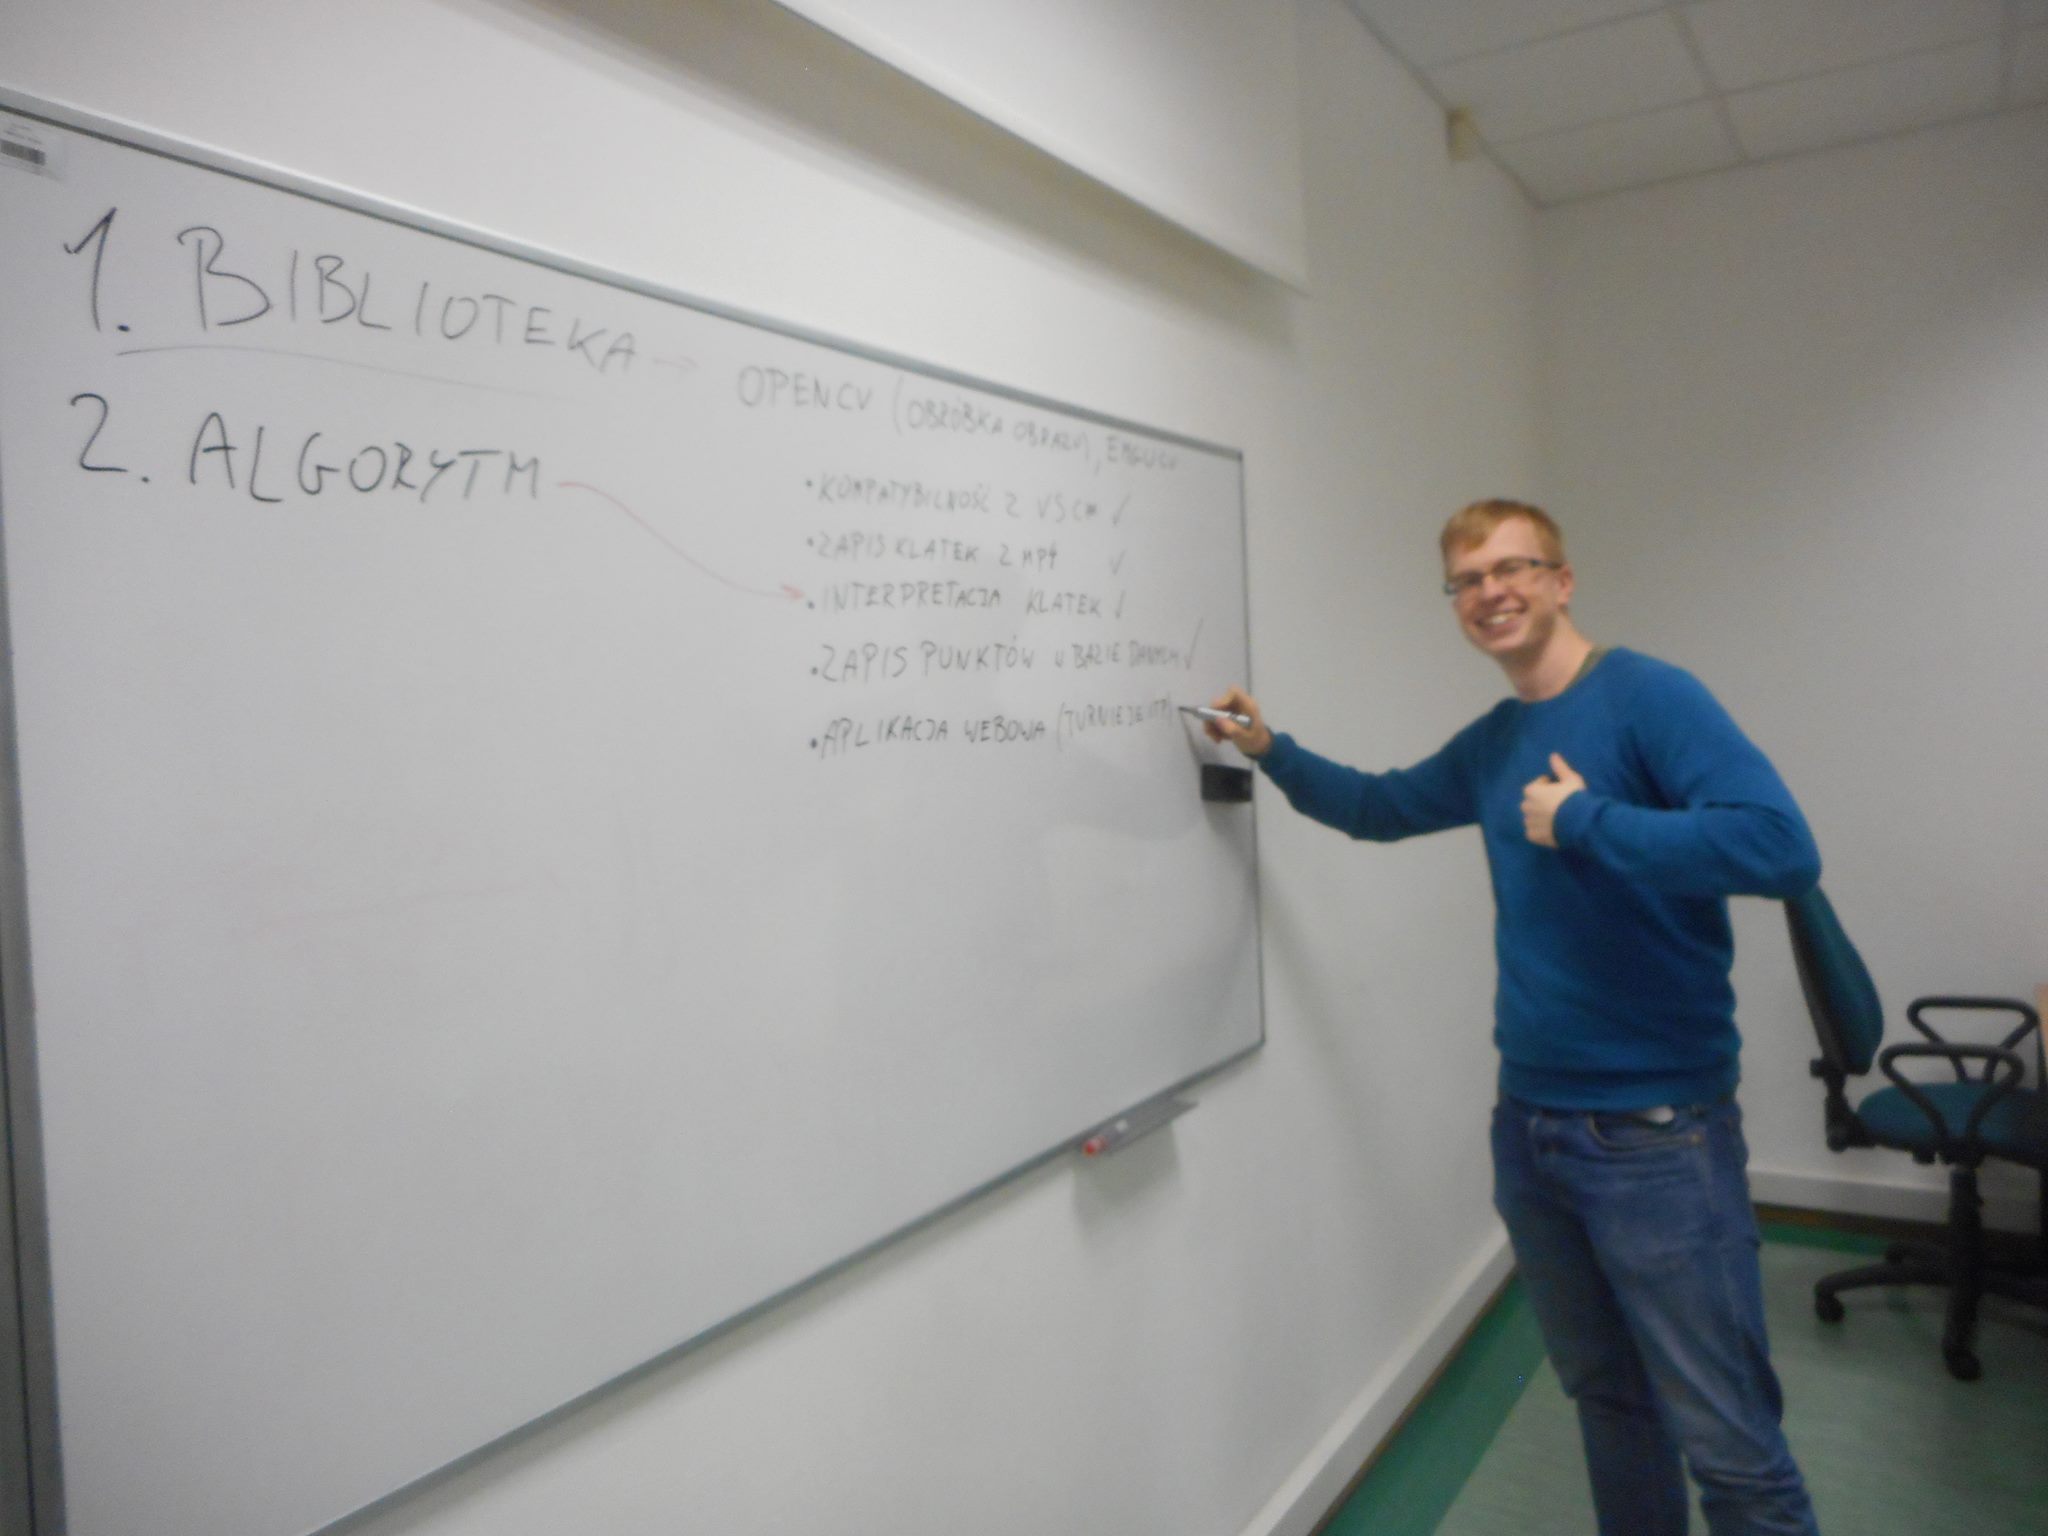 1. BIBLIOTEKA → OPENCV (OBRÓBKA OBRAZU), EMGUCV
2. ALGORYTM
• KOMPATYBILNOŚĆ Z VS C# ✓
• ZAPIS KLATEK Z MP4 ✓
• INTERPRETACJA KLATEK ✓
• ZAPIS PUNKTÓW W BAZIE DANYCH ✓
• APLIKACJA WEBOWA (TURNIEJE UTP)